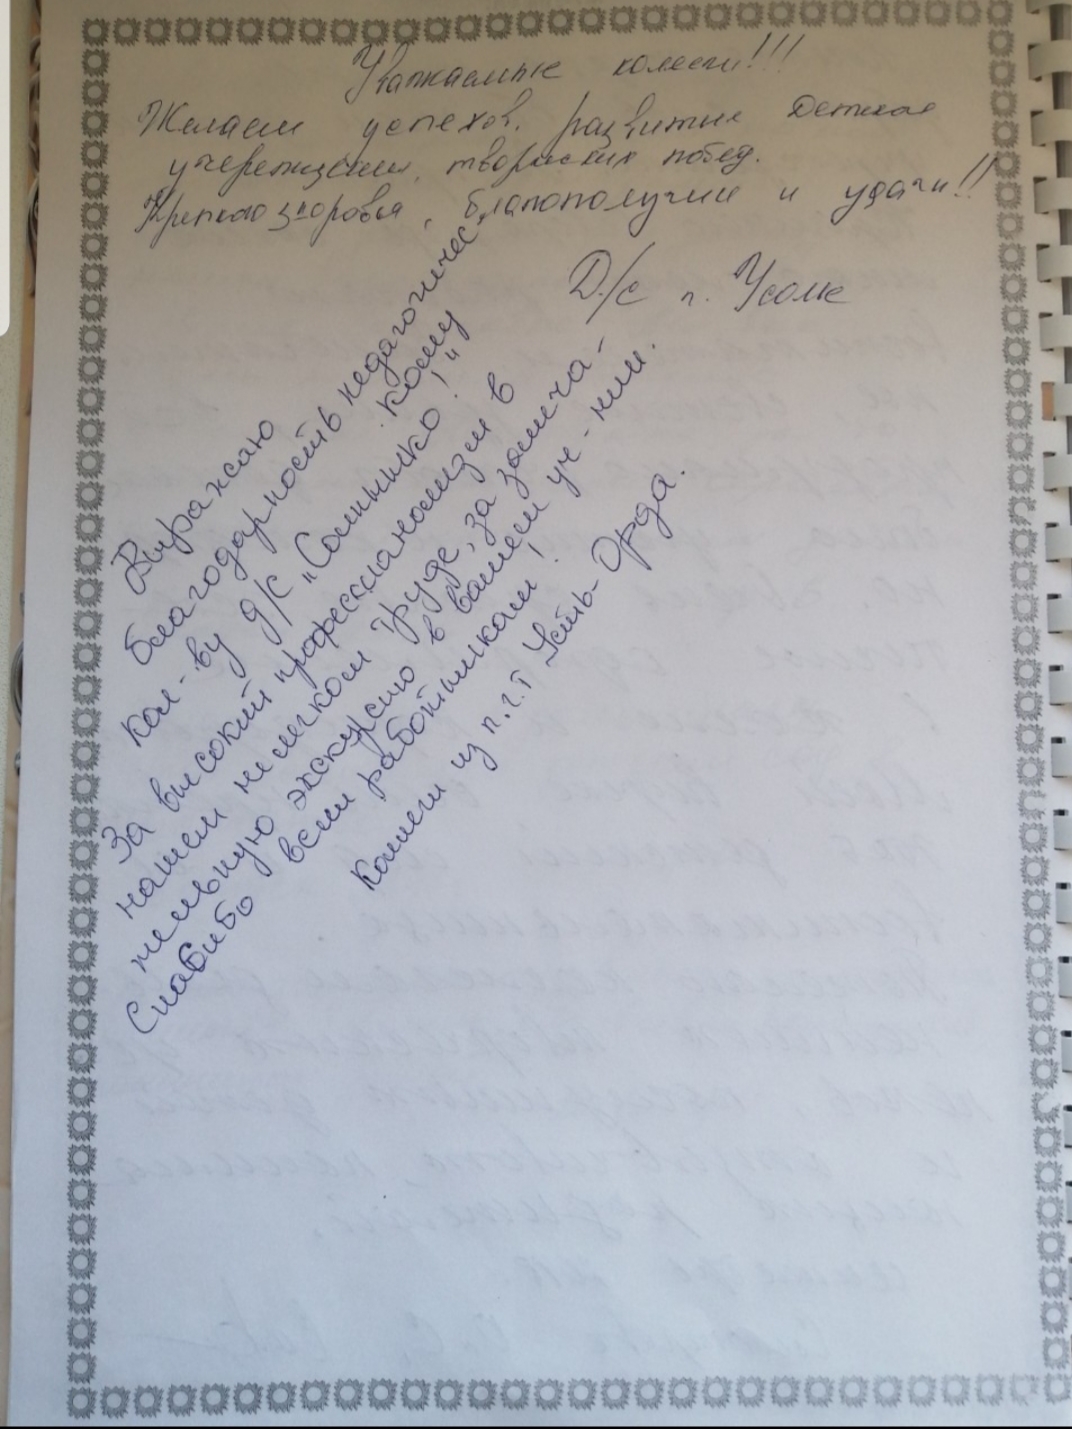 Уважаемые колеги!!!
Желаем успехов, развития Детская
учереждении, творческих побед.
Крепкого здоровья, благополучии и удачи!!
Д/с п. Усолье
Выражаю
благодарность педагогичес-
кому
кол-ву д/с "Солнышко!"
За высокий профессианолизм в
нашем не легком труде, за замеча-
тельную экскурсию в вашем уч-нии.
Спасибо всем работникам!
Коллеги из п.г.т Усть-Орда.